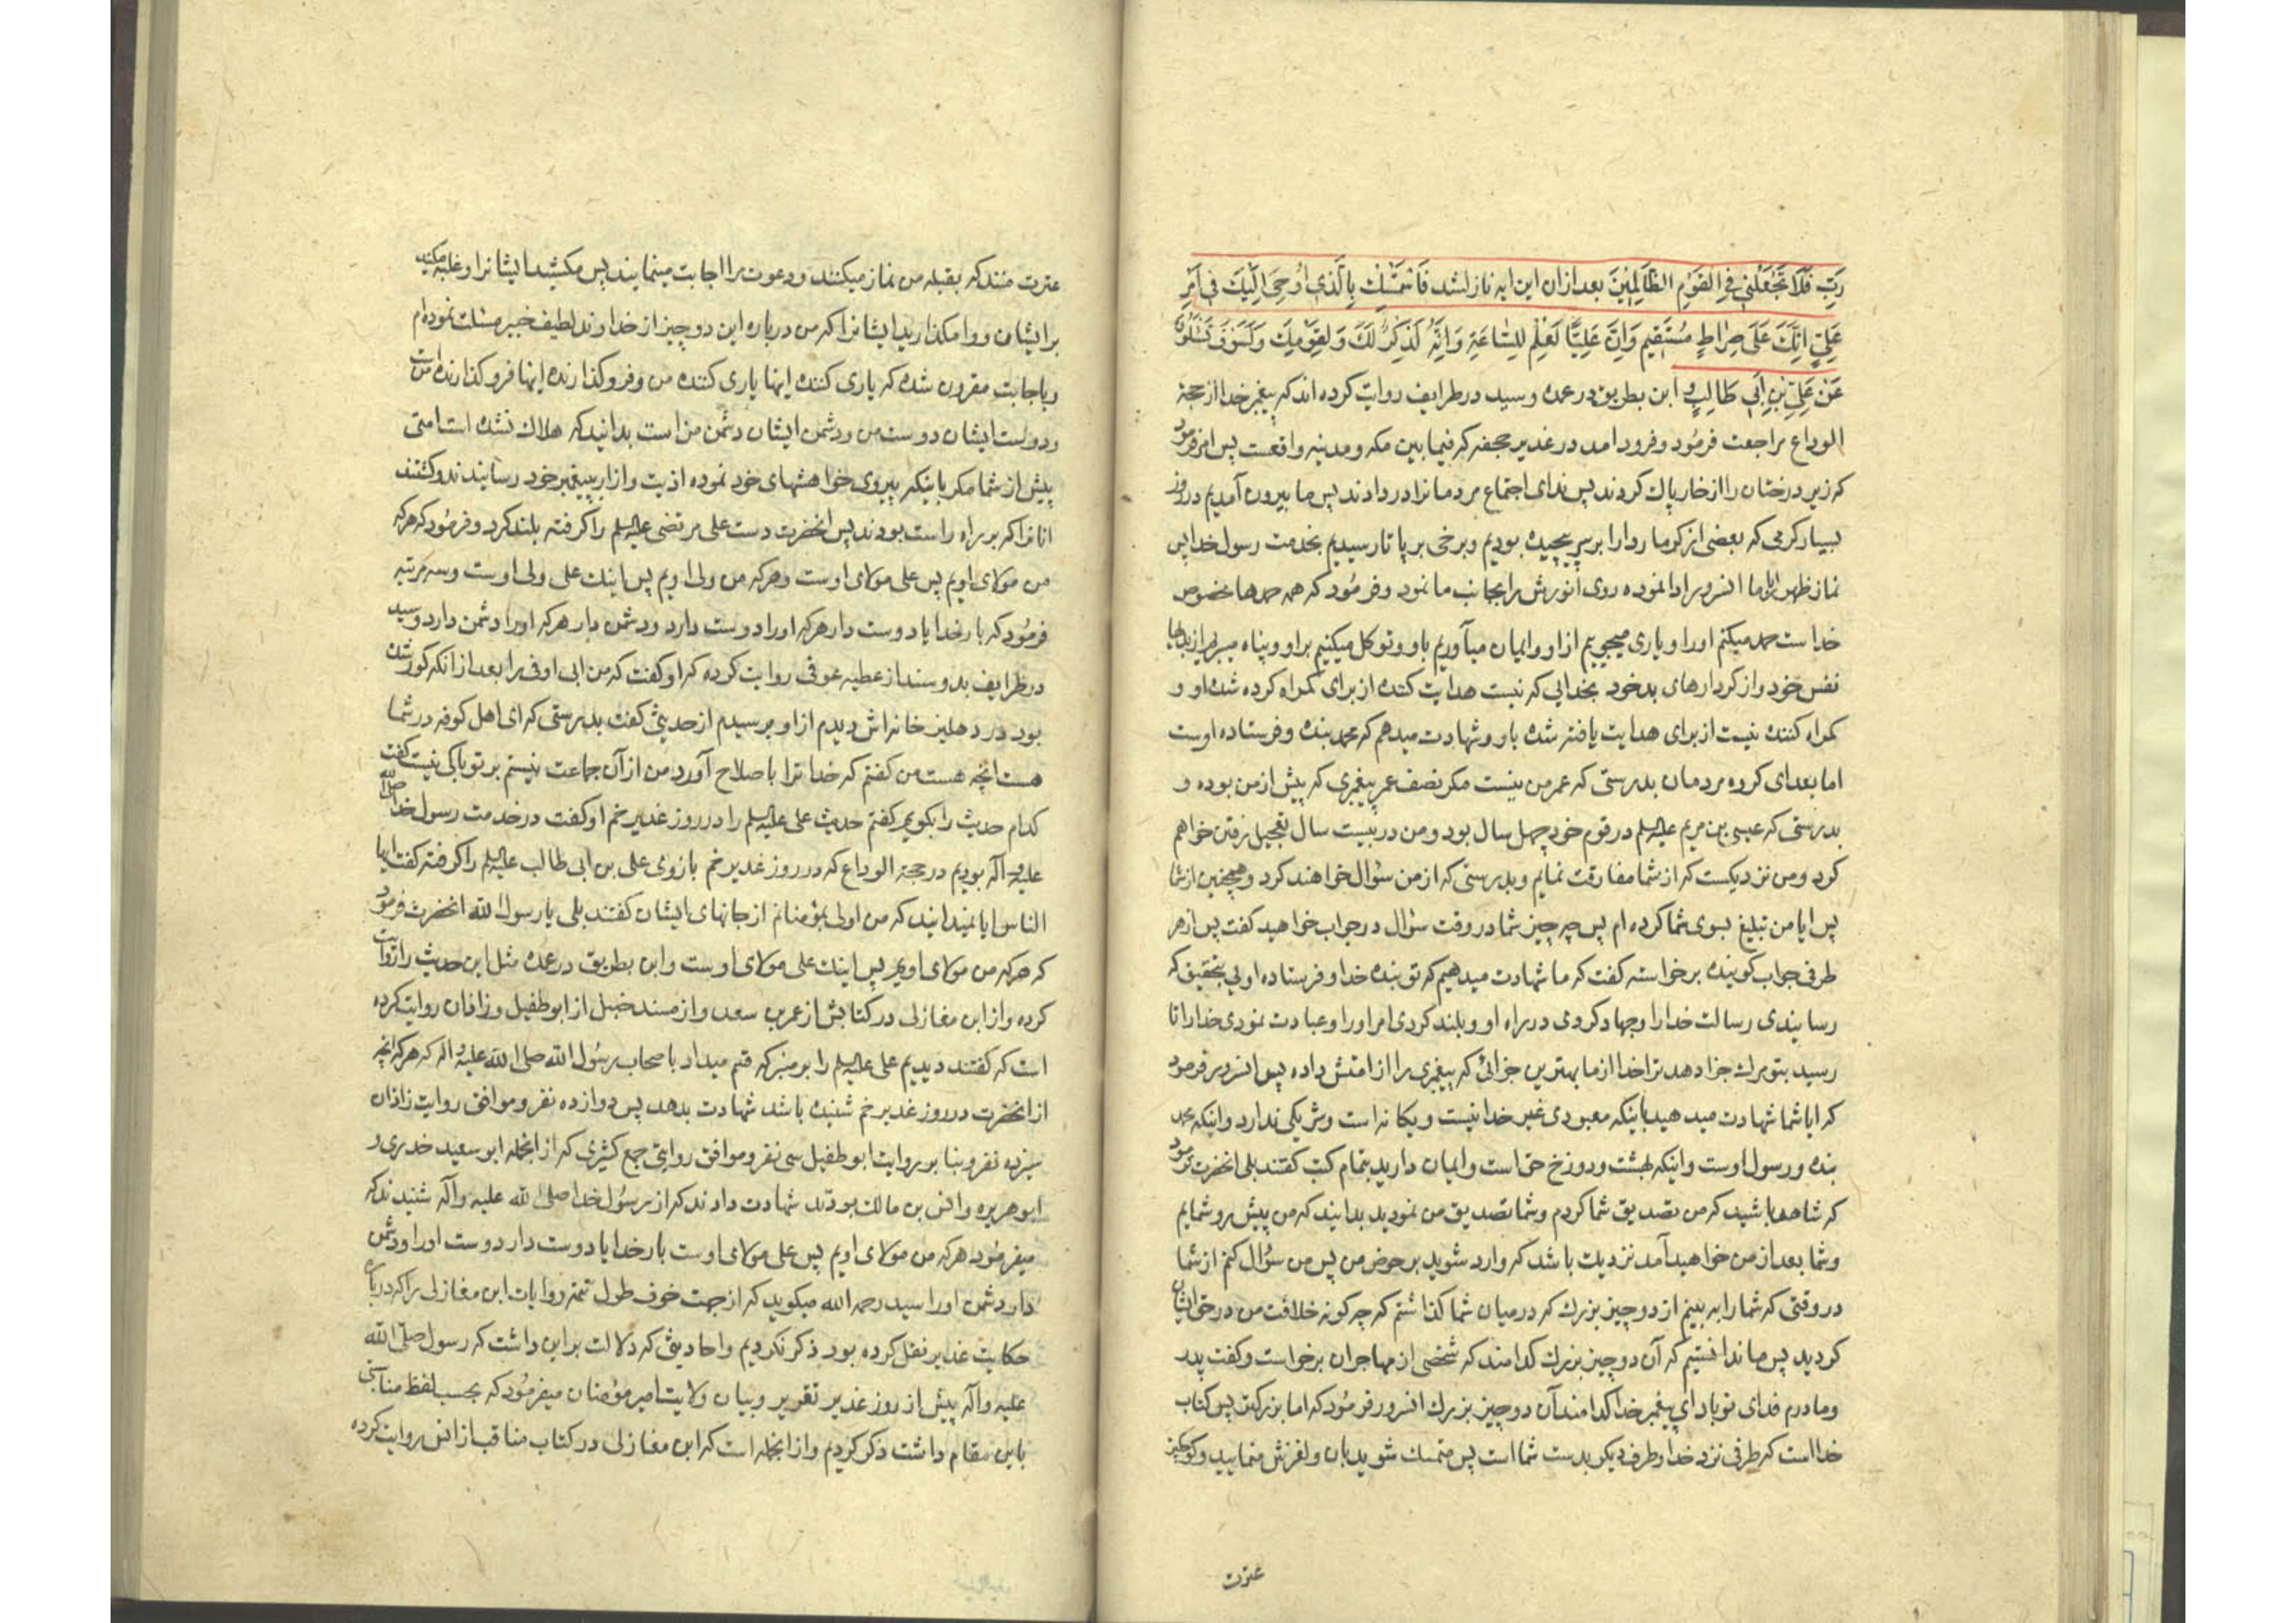 رَبِّ فَلَا تَجْعَلْنِی فِی الْقَوْمِ الظَّالِمِینَ بعد ازان این ایه نازل شد فَاسْتَمْسِكْ بِالَّذِی اُوحِیَ اِلَیْكَ فی اَمْرِ
عَلِیٍّ اِنَّكَ عَلَی صِرَاطٍ مُسْتَقِیمٍ وَاِنَّ عَلِیًّا لَعِلْمٌ لِلسَّاعَةِ وَاِنَّهُ لَذِكْرٌ لَكَ وَلِقَوْمِكَ وَلَسَوْفَ تُسْئَلُونَ
عَنْ عَلِیِّ بْنِ اَبِی طَالِبٍ و ابن بطریق در عمده و سید در طرایف روایت کرده اند که پیغمبر خدا از حجة
الوداع مراجعت فرمُود و فرود امد در غدیر جحفه که فیما بین مکه و مدینه واقعست پس امر فرمود
که زیر درختان را از خار پاك کردند پس ندای اجتماع مردمانرا در دادند پس ما بیرون آمدیم در روز
بسیار کرمی که بعضی از کرما ردا را بر سر پیچیده بودیم و برخی بر پا تا رسیدیم بخدمت رسول خدا پس
نماز ظهر با ما انسرور ادا نموده روی انورش را بجانب ما نمود و فرمُود که همه حمدها مخصوص
خداست حمد میکنم اورا و یاری میجوییم از او و ایمان میآوریم باو و توکل میکنیم بر او و پناه میبریم از بدیها
نفس خود و از کردارهای بد خود بخدایی که نیست هدایت کننده از برای کمراه کرده شده او و
کمراه کننده نیست از برای هدایت یافته شده باو و شهادت میدهم که محمد بنده و فرستاده اوست
اما بعد ای کروه مردمان بدرستی که عمر من نیست مکر نصف عمر پیغمبری که پیش از من بوده و
بدرستی که عیسی بن مریم علیه السلم در قوم خود چهل سال بود و من در بیست سال تعجیل رفتن خواهم
کرد و من نزدیکست که از شما مفارقت نمایم و بدرستی که از من سؤال خواهند کرد و همچنین از شما
پس ایا من تبلیغ بسوی شما کرده ام پس چه چیز شما در وقت سؤال در جواب خواهید کفت پس از هر
طرفی جواب کوینده برخواسته کفت که ما شهادت میدهیم که تو بنده خدا و فرستاده اویی بتحقیق که
رسانیدی رسالت خدا را و جهاد کردی در راه او و بلند کردی امر اورا و عبادت نمودی خدا را تا
رسید بتو مرك جزا دهد ترا خدا از ما بهترین جزائی که پیغمبری را از امتش داده پس انسرور فرمود
که ایا شما شهادت میدهید باینکه معبودی غیر خدا نیست و یکانه است و شریکی ندارد و اینکه محمد
بنده و رسول اوست و اینکه بهشت و دوزخ حق است و ایمان دارید بتمام کتب کفتند بلی انحضرت فرمود
که شاهد باشید که من تصدیق شما کردم و شما تصدیق من نمودید بدانید که من پیش رو شمایم
و شما بعد از من خواهید آمد نزدیك باشد که وارد شوید بر حوض من پس من سؤال کنم از شما
در وقتی که شما را به بینم از دو چیز بزرك که در میان شما کذاشتم که چه کونه خلافت من در حق ایشان
کردید پس ما ندانستیم که آن دو چیز بزرك کدامند که شخصی از مهاجران برخواست و کفت پدر
و مادرم فدای تو باد ای پیغمبر خدا کدامند آن دو چیز بزرك انسرور فرمُود که اما بزرکتر پس کتاب
خدا است که طرفی نزد خدا و طرف دیکر بدست شما است پس متمسك شوید بان و لغزش منمایید و کوچکتر
عترت
عترت منند که بقبله من نماز میکنند و دعوت مرا اجابت مینمایند پس مکشید ایشانرا و غلبه مکنید
برایشان و وامکذارید ایشانرا که من درباره این دو چیز از خداوند لطیف خبیر مسئلت نموده ام
و باجابت مقرون شده که یاری کننده اینها یاری کننده من و فرو کذارنده اینها فرو کذارنده من است
و دوست ایشان دوست من و دشمن ایشان دشمن من است بدانید که هلاك نشده است امتی
پیش از شما مکر باینکه پیروی خواهشهای خود نموده اذیت و ازار به پیغمبر خود رسانیدند و کشتند
انانرا که بر براه راست بودند پس انحضرت دست علی مرتضی علیه السلم را کرفته بلند کرد و فرمُود که هر که
من مولای اویم پس علی مولای اوست و هر که من ولی اویم پس اینك علی ولی اوست و سه مرتبه
فرمُود که بار خدایا دوست دار هر که اورا دوست دارد و دشمن دار هر که اورا دشمن دارد و سید
در طرایف بدو سند از عطیه عوفی روایت کرده که او کفت که من ابی اوفی را بعد از انکه کور شده
بود در دهلیز خانه اش دیدم از او پرسیدم از حدیثی کفت بدرستی که ای اهل کوفه در شما
هست انچه هست من کفتم که خدا ترا باصلاح آورد من از آن جماعت نیستم بر تو باکی نیست کفت
کدام حدیث را بکویم کفتم حدیث علی علیه السلم را در روز غدیر خم او کفت در خدمت رسول خدا صلی الله
علیه و آله بودیم در حجة الوداع که در روز غدیر خم بازوی علی بن ابی طالب علیه السلم را کرفته کفت ایها
الناس ایا نمیدانید که من اولی بمؤمنانم از جانهای ایشان کفتند بلی یا رسول الله انحضرت فرمُود
که هر که من مولای اویم پس اینك علی مولای اوست و ابن بطریق در عمده مثل این حدیث را روایت
کرده و از ابن مغازلی در کتابش از عمر بن سعد و از مسند حنبل از ابو طفیل و زاذان روایت کرده
است که کفتند دیدیم علی علیه السلم را بر منبر که قسم میداد باصحاب رسُول الله صلی الله علیه و اله که هر که انچه
از انحضرت در روز غدیر خم شنیده باشد شهادت بدهد پس دوازده نفر و موافق روایت زاذان
سیزده نفر و بنا بر روایت ابو طفیل سی نفر و موافق روایتی جمع کثیری که از انجمله ابو سعید خدری و
ابو هریره و انس بن مالك بودند شهادت دادند که از رسُول خدا صلی الله علیه و آله شنیدند که
میفرمُود هر که من مولای اویم پس علی مولای اوست بار خدایا دوست دار دوست اورا و دشمن
دار دشمن اورا سید رحمه الله میکوید که از جهت خوف طول تتمه روایات ابن مغازلی را که درباب
حکایت غدیر نقل کرده بود ذکر نکردیم و احادیثی که دلالت بر این داشت که رسول صلّی الله
علیه و آله پیش از روز غدیر تقریر و بیان ولایت امیر مؤمنان میفرمُود که بحسب لفظ مناسبتی
باین مقام داشت ذکر کردیم و از انجمله است که ابن مغازلی در کتاب مناقب از انس روایت کرده